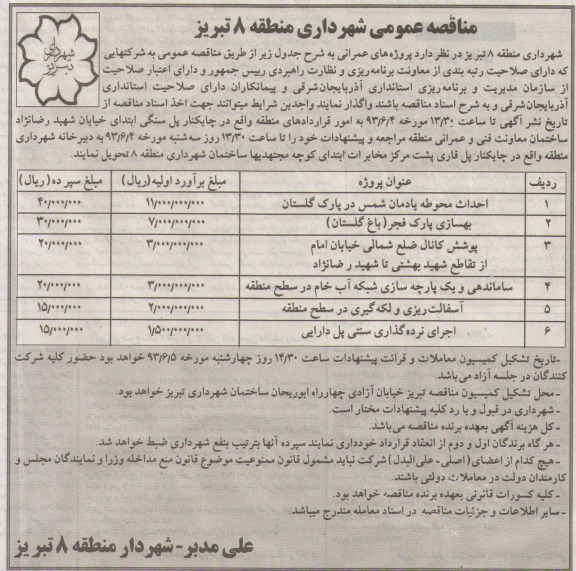 مناقصه عمومی شهرداری منطقه ۸ تبریز
شهرداری تبریز
شهرداری منطقه ۸ تبریز در نظر دارد پروژه های عمرانی به شرح جدول زیر از طریق مناقصه عمومی به شرکتهایی
که دارای صلاحیت رتبه بندی از معاونت برنامه ریزی و نظارت راهبردی رییس جمهور و دارای اعتبار صلاحیت
از سازمان مدیریت و برنامه ریزی استانداری آذربایجان شرقی و پیمانکاران دارای صلاحیت استانداری
آذربایجان شرقی و به شرح اسناد مناقصه باشند واگذار نمایند واجدین شرایط میتوانند جهت اخذ اسناد مناقصه از
تاریخ نشر آگهی تا ساعت ۱۳/۳۰ مورخه ۹۳/۶/۴ به امور قراردادهای منطقه واقع در چایکنار پل سنگی ابتدای خیابان شهید رضانژاد
ساختمان معاونت فنی و عمرانی منطقه مراجعه و پیشنهادات خود را تا ساعت ۱۳/۳۰ روز سه شنبه مورخه ۹۳/۶/۴ به دبیرخانه شهرداری
منطقه واقع در چایکنار پل قاری پشت مرکز مخابرات ابتدای کوچه مجتهدیها ساختمان شهرداری منطقه ۸ تحویل نمایند.
ردیف عنوان پروژه مبلغ برآورد اولیه(ریال) مبلغ سپرده(ریال)
۱ احداث محوطه یادمان شمس در پارک گلستان ۱۱/۰۰۰/۰۰۰/۰۰۰ ۴۰/۰۰۰/۰۰۰
۲ بهسازی پارک فجر(باغ گلستان) ۷/۰۰۰/۰۰۰/۰۰۰ ۳۰/۰۰۰/۰۰۰
۳ پوشش کانال ضلع شمالی خیابان امام ۳/۰۰۰/۰۰۰/۰۰۰ ۲۰/۰۰۰/۰۰۰
از تقاطع شهید بهشتی تا شهید رضانژاد
۴ ساماندهی و یک پارچه سازی شبکه آب خام در سطح منطقه ۳/۰۰۰/۰۰۰/۰۰۰ ۲۰/۰۰۰/۰۰۰
۵ آسفالت ریزی و لکه گیری در سطح منطقه ۲/۰۰۰/۰۰۰/۰۰۰ ۱۵/۰۰۰/۰۰۰
۶ اجرای نرده گذاری سنتی پل دارایی ۱/۵۰۰/۰۰۰/۰۰۰ ۱۵/۰۰۰/۰۰۰
-تاریخ تشکیل کمیسیون معاملات و قرائت پیشنهادات ساعت ۱۴/۳۰ روز چهارشنبه مورخه ۹۳/۶/۵ خواهد بود حضور کلیه شرکت
کنندگان در جلسه آزاد می باشد.
- محل تشکیل کمیسیون مناقصه تبریز خیابان آزادی چهارراه ابوریحان ساختمان شهرداری تبریز خواهد بود.
- شهرداری در قبول و یا رد کلیه پیشنهادات مختار است.
- کل هزینه آگهی بعهده برنده مناقصه می باشد.
- هر گاه برندگان اول و دوم از انعقاد قرارداد خودداری نمایند سپرده آنها بترتیب بنفع شهرداری ضبط خواهد شد.
- هیچ کدام از اعضای (اصلی- علی البدل) شرکت نباید مشمول قانون ممنوعیت موضوع قانون منع مداخله وزرا و نمایندگان مجلس و
کارمندان دولت در معاملات دولتی باشند.
- کلیه کسورات قانونی بعهده برنده مناقصه خواهد بود.
- سایر اطلاعات و جزئیات مناقصه در اسناد معامله مندرج میباشد.
علی مدبر- شهردار منطقه ۸ تبریز